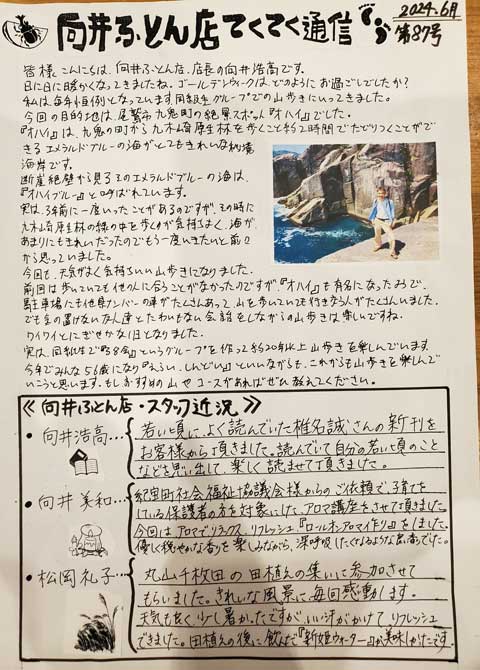 向井ふとん店てくてく通信
2024.6月
第87号
皆様こんにちは、向井ふとん店、店長の向井浩高です。
日に日に暖かくなってきましたね。ゴールデンウィークは、どのようにお過ごしでしたか？
私は毎年恒例となっています同級生グループでの山歩きにいってきました。
今回の目的地は、尾鷲市九鬼町の絶景スポット『オハイ』でした。
『オハイ』は、九鬼の町から九木崎原生林を歩くこと約2時間でたどりつくことがで
きるエメラルドブルーの海がとてもきれいな
海岸です。
断崖絶壁から見るそのエメラルドブルーの海は、
『オハイブルー』と呼ばれています。
実は、3年前に一度いったことがあるのですが、その時に
九木崎原生林の緑の中を歩くのが気持ちよく、海が
あまりにもきれいだったのでもう一度いきたいと前々
から思っていました。
今回も、天気がよく気持ちいい山歩きになりました。
前回は歩いていても他の人に会うことがなかったのですが、『オハイ』も有名になったようで、
駐車場にも他県ナンバーの車がたくさんあって、山を歩いていても行き交う人がたくさんいました。
でも気の置けない友人達とたわいもない会話をしながらの山歩きは楽しいですね。
ワイワイとにぎやかな1日となりました。
実は、同級生で というグループを作って約20年以上山歩きを楽しんでいます
今年でみんな56歳になり『えらい、しんどい』といいながらも、これからも山歩きを楽しんで
いこうと思います。もしおすすめの山やコースがあればぜひ教えてください。
《向井ふとん店・スタッフ近況》
・向井浩高…
若い頃によく読んでいた椎名誠さんの新刊を
お客様から頂きました。読んでいて自分の若い頃のこと
なども思い出して、楽しく読ませて頂きました。
・向井美和…
紀宝町社会福祉協議会様からのご依頼で、子育てを
している保護者の方を対象にした、アロマ講座をさせて頂きました。
今回はアロマでリラックス リフレッシュ『ロールオンアロマ作り』をしました。
優しく穏やかな香りを楽しみながら、深呼吸したくなるような
・松岡礼子…
丸山千枚田の田植えの集いに参加させて
もらいました。きれいな風景に、毎回感動します。
天気も良く少し暑かったですが、いい汗がかけてリフレッシュ
できました。田植えの後に飲んだ『新姫ウォーター』が美味しかったです。